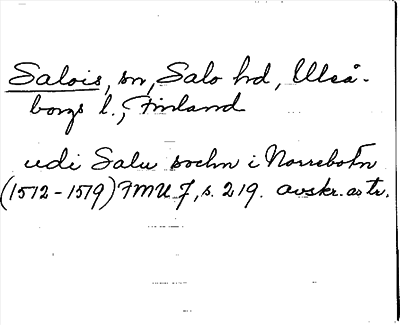 Salois, sn, Salo hd, Uleå-
borgs l., Finland
udi Salu sochn i Norrebotn
(1512-1519) FMU 7, s. 219. avskr. as tr.